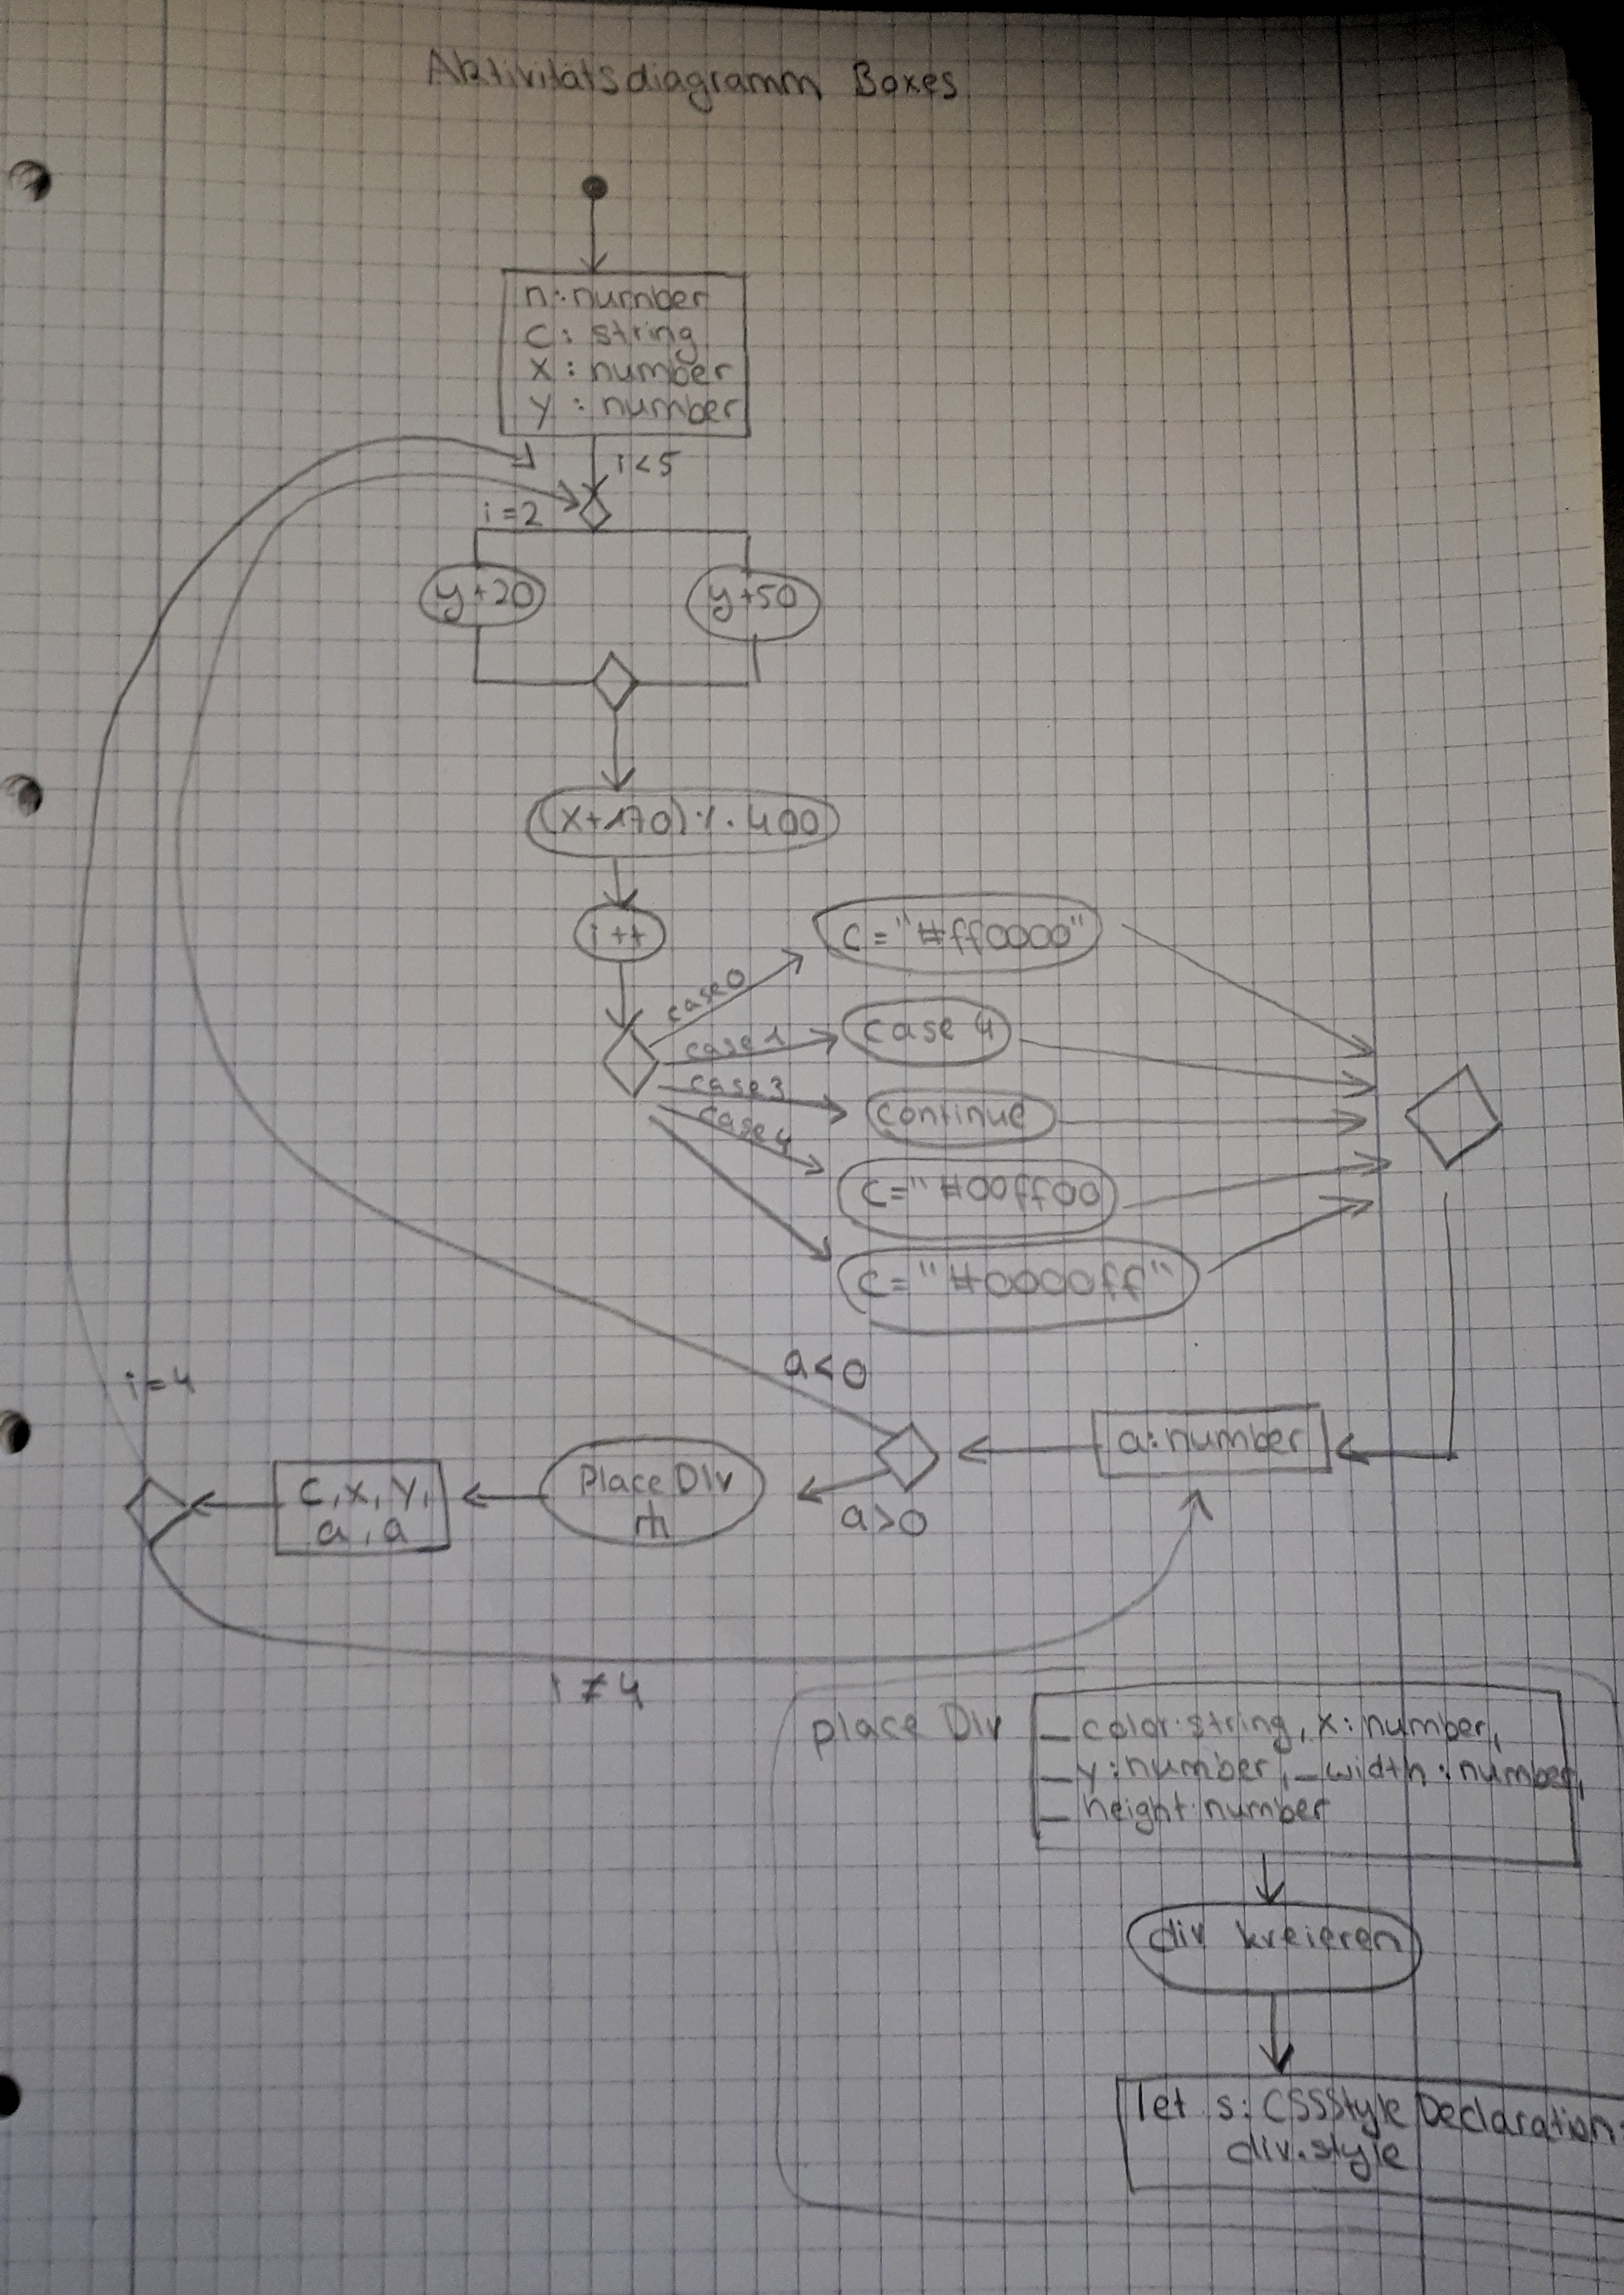 Aktivitätsdiagramm Boxes
n: number
c: string
x: number
y: number
i<5
i=2
y+20
y+50
(x+170)%400
i++
case 0
c="#ff0000"
case 1
case 4
case 3
continue
case 4
c="#00ff00
c="#0000ff"
a<0
i=4
a:number
Place Div
c, x, y,
a, a
a>0
i≠4
place Div
_color:string, x:number,
_y:number, _width:number,
_height:number
div kreieren
let s: CSSStyleDeclaration=
div.style